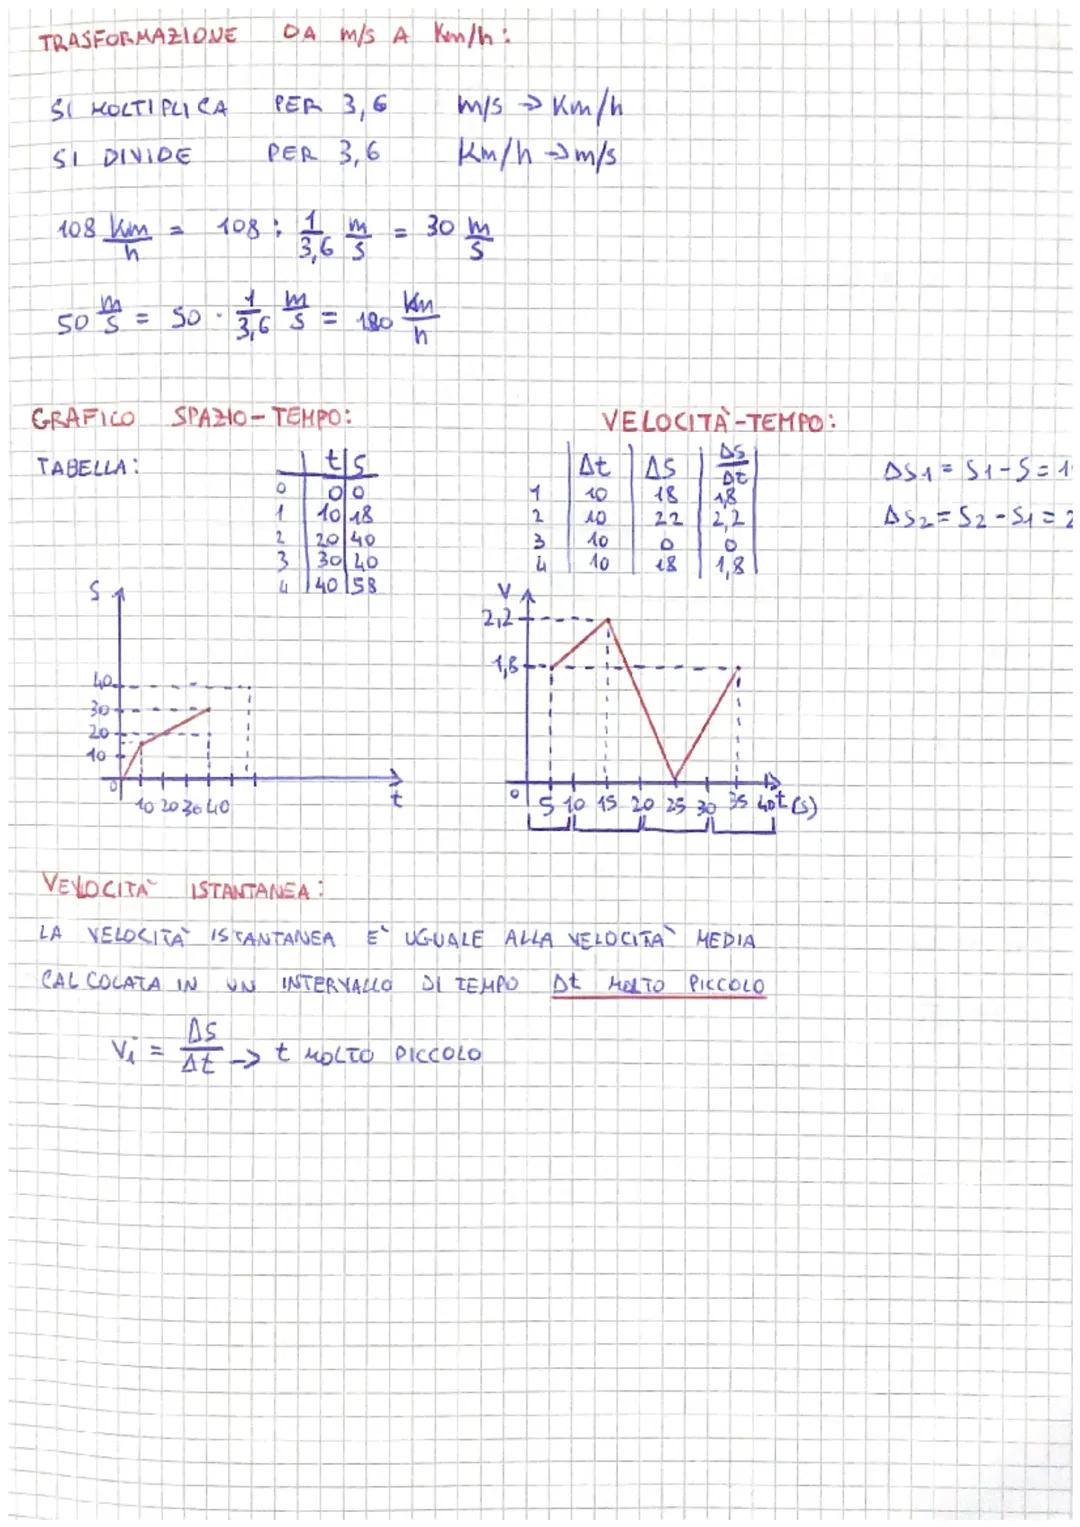 TRASFORMAZIONE DA m/s A Km/h:
SI MOLTIPLICA PER 3,6 m/s → Km/h
SI DIVIDE PER 3,6 Km/h → m/s
108 Km/h = 108 : 1/3,6 m/s = 30 m/s
50 m/s = 50 · 1/3,6 m/s = 180 Km/h
GRAFICO SPAZIO-TEMPO:
VELOCITÀ-TEMPO:
TABELLA:
t S
0 0 0
1 10 18
2 20 40
3 30 40
4 40 58
Δt ΔS ΔS/Δt
1 10 18 1,8
2 10 22 2,2
3 10 0 0
4 10 18 1,8
ΔS1 = S1 - S = 1
ΔS2 = S2 - S1 = 2
S
40
30
20
10
0
10 20 30 40
t
V
2,2
1,8
0 5 10 15 20 25 30 35 40 t (s)
VELOCITÀ ISTANTANEA:
LA VELOCITÀ ISTANTANEA È UGUALE ALLA VELOCITÀ MEDIA
CALCOLATA IN UN INTERVALLO DI TEMPO Δt MOLTO PICCOLO
Vi = ΔS/Δt → t MOLTO PICCOLO